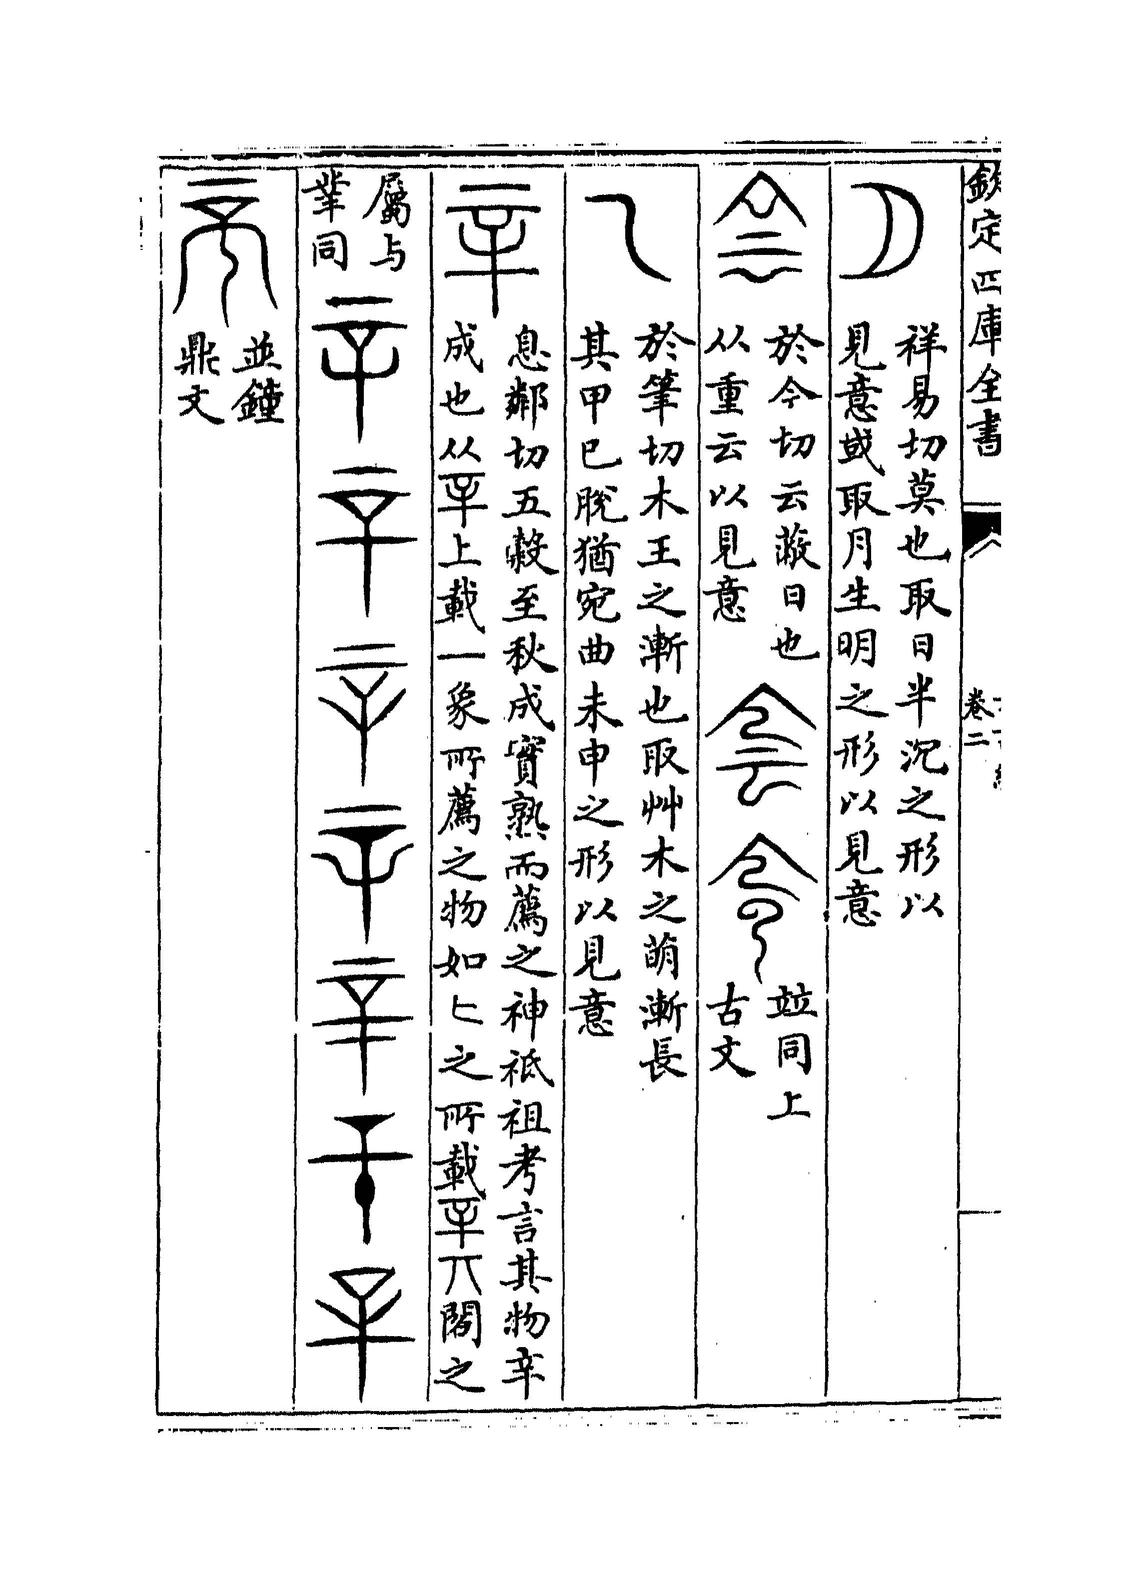 欽定四庫全書
卷二
祥易切莫也取日半沉之形以
見意或取月生明之形以見意
於今切云蔽日也
从重云以見意
竝同上
古文
於筆切木王之漸也取艸木之萌漸長
其甲已脫猶宛曲未申之形以見意
息鄰切五穀至秋成實熟而薦之神祇祖考言其物辛
成也从 上載一象所薦之物如匕之所載 丌閣之
屬与
𨏮同
並鐘
鼎文